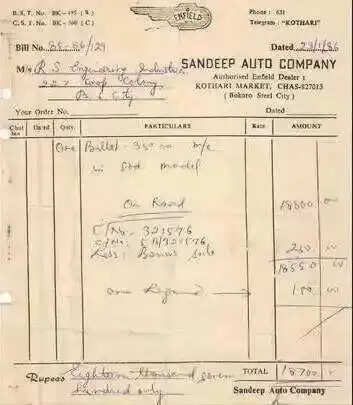 B. S. T. No. BK-195 ( R )
C. S. T. No. BK-500 ( C )
ENFIELD
Phone : 631
Telegram : "KOTHARI"
Bill No. 85-86/129
Dated 23/1/86
M/s R S Engineering Industries
SANDEEP AUTO COMPANY
Coop Colony
Authorised Enfield Dealer :
B. S. City
KOTHARI MARKET, CHAS-827013
( Bokaro Steel City )
Your Order No. Dated
PARTICULARS Rate AMOUNT
Qnty.
One Bullet - 350 cc m/c
Std model
On Road 18300 00
C/No - 321576
E/No: 5B/321576
Less: Bonus 250 00
18550 00
one Legguard 150 00
Rupees Eighteen thousand seven
TOTAL 18700
hundred only
Sandeep Auto Company